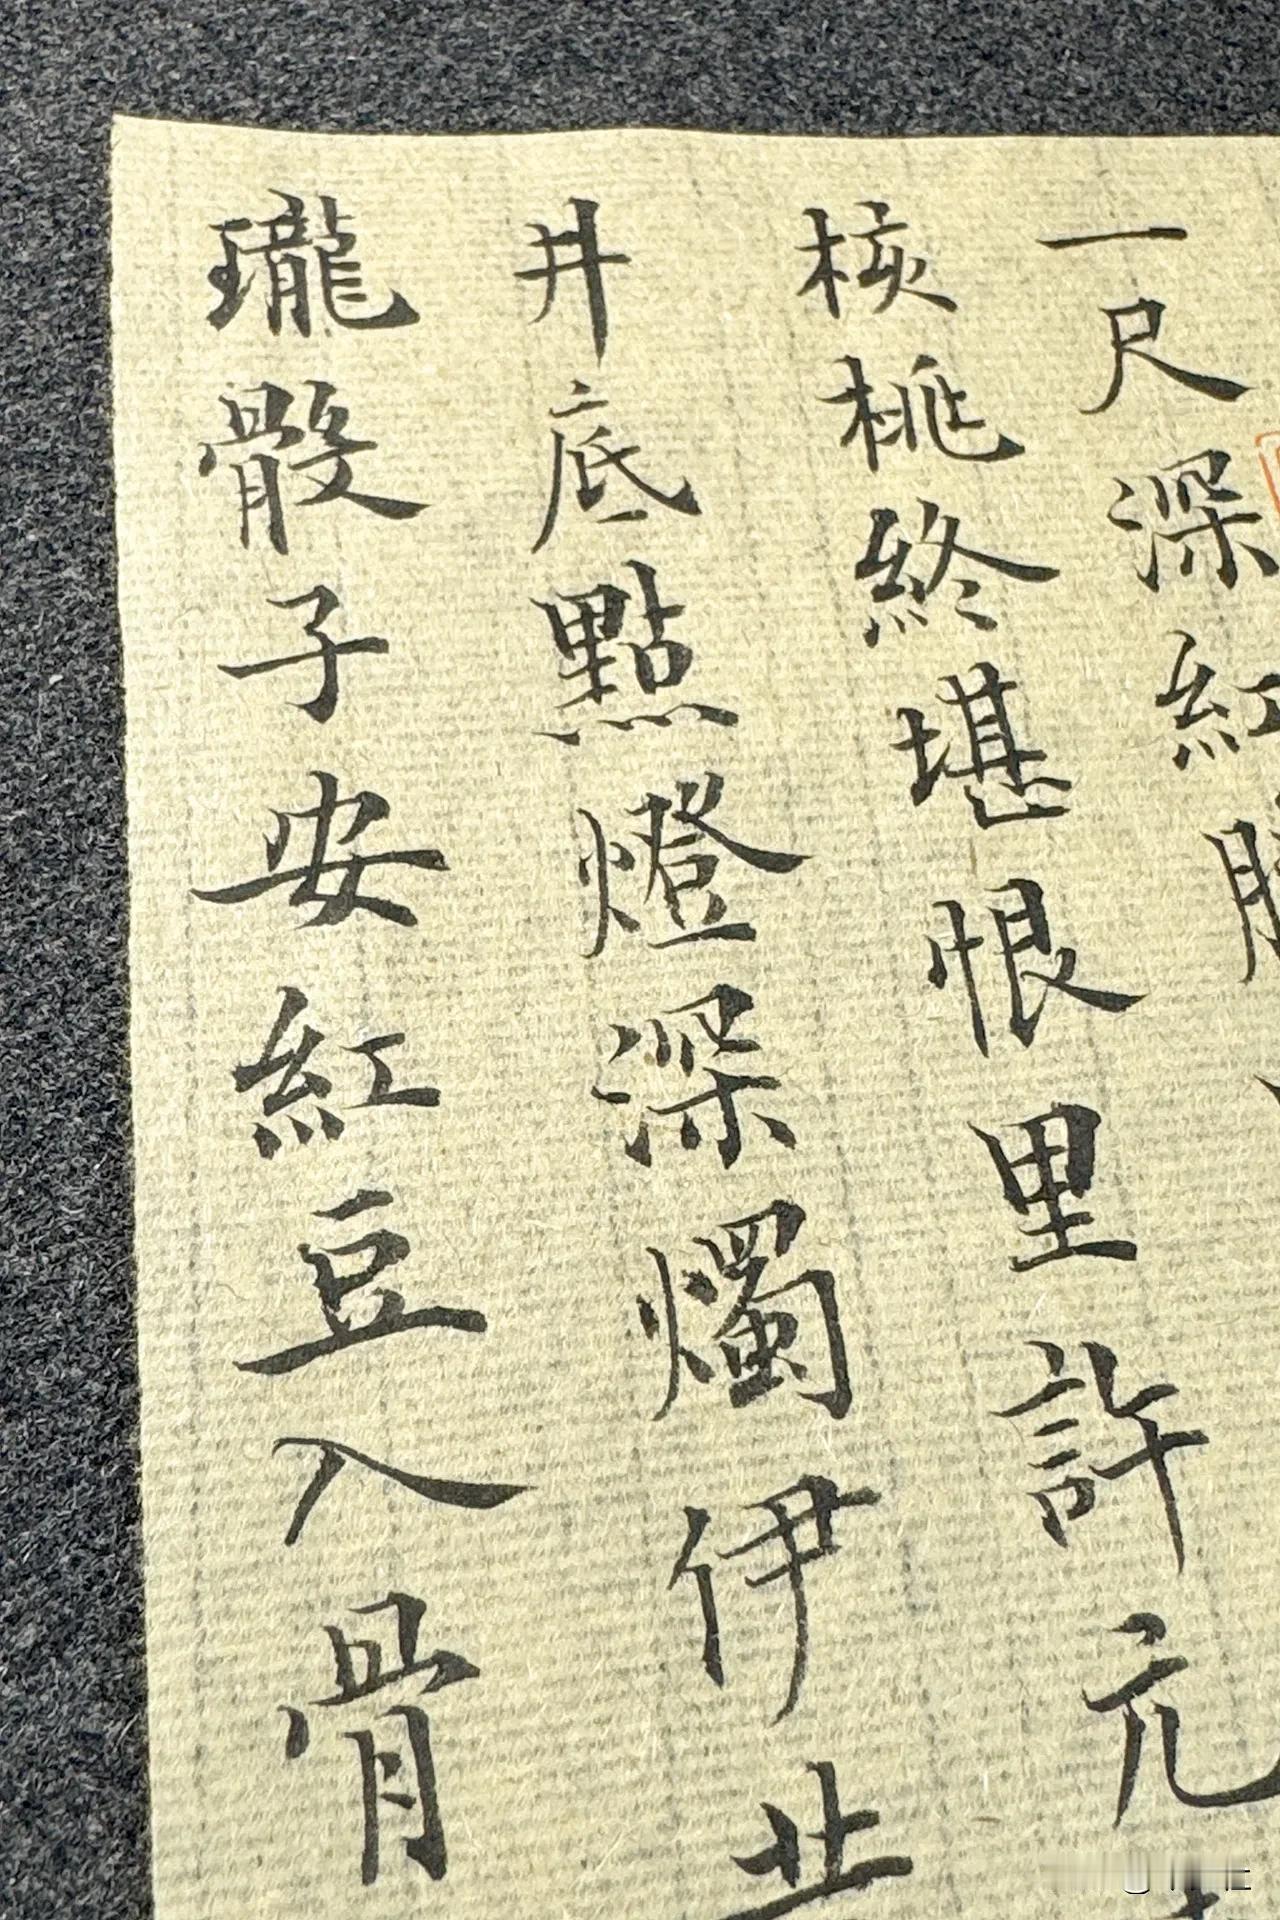 一尺深紅
核桃終堪恨里許元
井底點燈深燭伊
瓏骰子安紅豆入骨